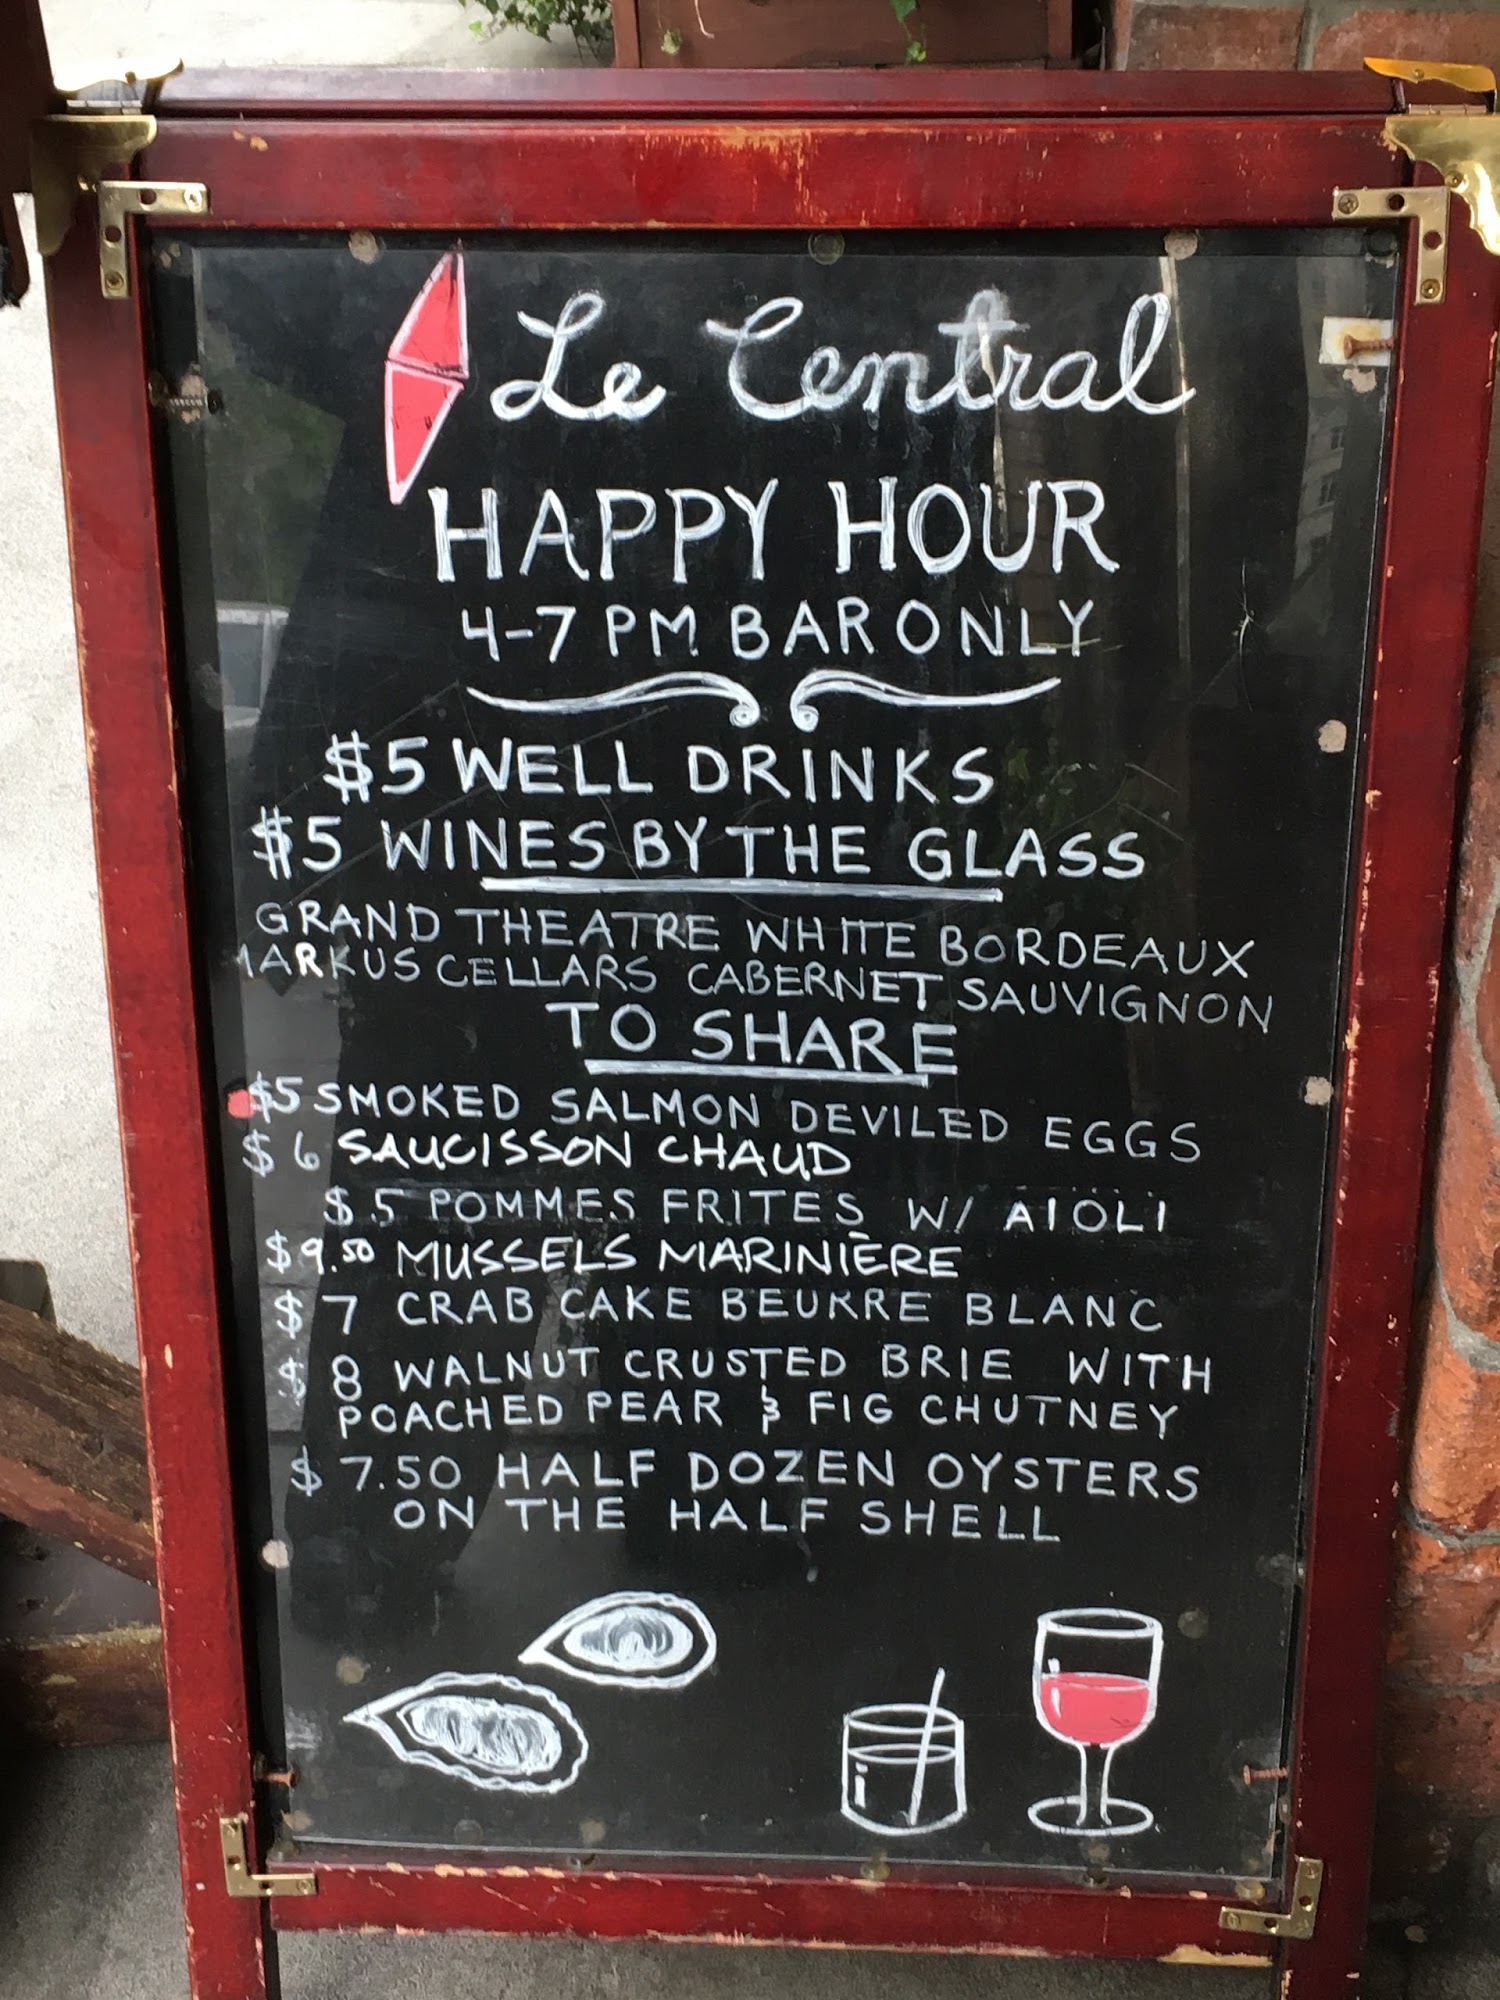 Le Central
HAPPY HOUR
4-7 PM BAR ONLY
$5 WELL DRINKS
$5 WINES BY THE GLASS
GRAND THEATRE WHITE BORDEAUX
MARKUS CELLARS CABERNET SAUVIGNON
TO SHARE
$5 SMOKED SALMON DEVILED EGGS
$6 SAUCISSON CHAUD
$5 POMMES FRITES W/ AIOLI
$9.50 MUSSELS MARINIÈRE
$7 CRAB CAKE BEURRE BLANC
$8 WALNUT CRUSTED BRIE WITH
POACHED PEAR & FIG CHUTNEY
$7.50 HALF DOZEN OYSTERS
ON THE HALF SHELL